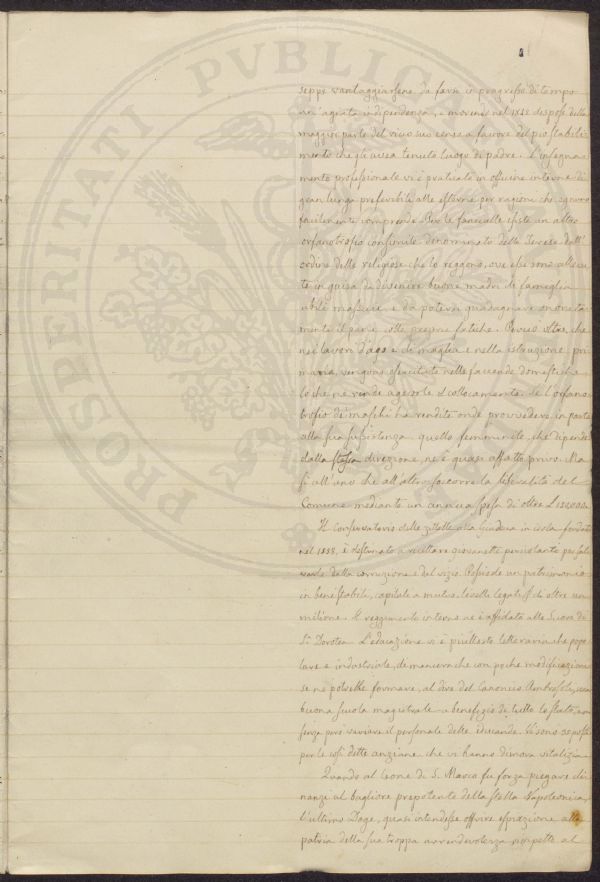 PROSPERITATI PVBLICAE
seppe vantaggiarsene da farsi in progresso di tempo
un'agiata indipendenza, e morendo nel 1842 dispose della
maggior parte del vivo suo censo a favore del pio stabili-
mento che gli avea tenuto luogo di padre. L'insegna-
mento professionale vi è praticato in officine interne di
gran lunga preferibili alle esterne per ragioni che ognuno
facilmente comprende. Per le fanciulle esiste un altro
orfanotrofio consimile denominato delle Terese dall'
ordine delle religiose che lo reggono, ove esse sono alleva-
te in guisa da divenire buone madri di famiglia
abili massaie e da potersi guadagnare onorata-
mente il pane colle proprie fatiche. Perciò oltre che
nei lavori d'ago e di maglia e nella istruzione pri-
maria, vengono esercitate nelle faccende domestiche
lo che ne rende agevole il collocamento. Se l'orfano-
trofio dei maschi ha rendite onde provvedere in parte
alla sua sussistenza quello femminile, che dipende
dalla stessa direzione, ne è quasi affatto privo. Ma
sì all'uno che all'altro soccorre la liberalità del
Comune mediante un annua spesa di oltre L 130000.
Il Conservatorio delle zitelle alla Giudecca in isola fondato
nel 1558, è destinato a ricettare giovanette pericolanti per sal-
varle dalla corruzione e dal vizio. Possiede un patrimonio
in beni stabili, capitali a mutuo, livelli legati &. di oltre un
milione. Il reggimento interno ne è affidato alle Suore di
S.a Dorotea. L'educazione vi è piuttosto letteraria che popo-
lare e industriale, di maniera che con poche modificazioni
se ne potrebbe formare, al dire del Canonico Ambrosoli, una
buona scuola magistrale a benefizio di tutto lo stato, con
forza però variare il personale delle educande. Vi sono 30 posti
per le così dette anziane che vi hanno dimora vitalizia.
Quando al leone di S. Marco fu forza piegare di-
nanzi al bagliore prepotente della stella Napoleonica,
l'ultimo Doge, quasi intendesse offrire espiazione alla
patria della sua troppa arrendevolezza rispetto al